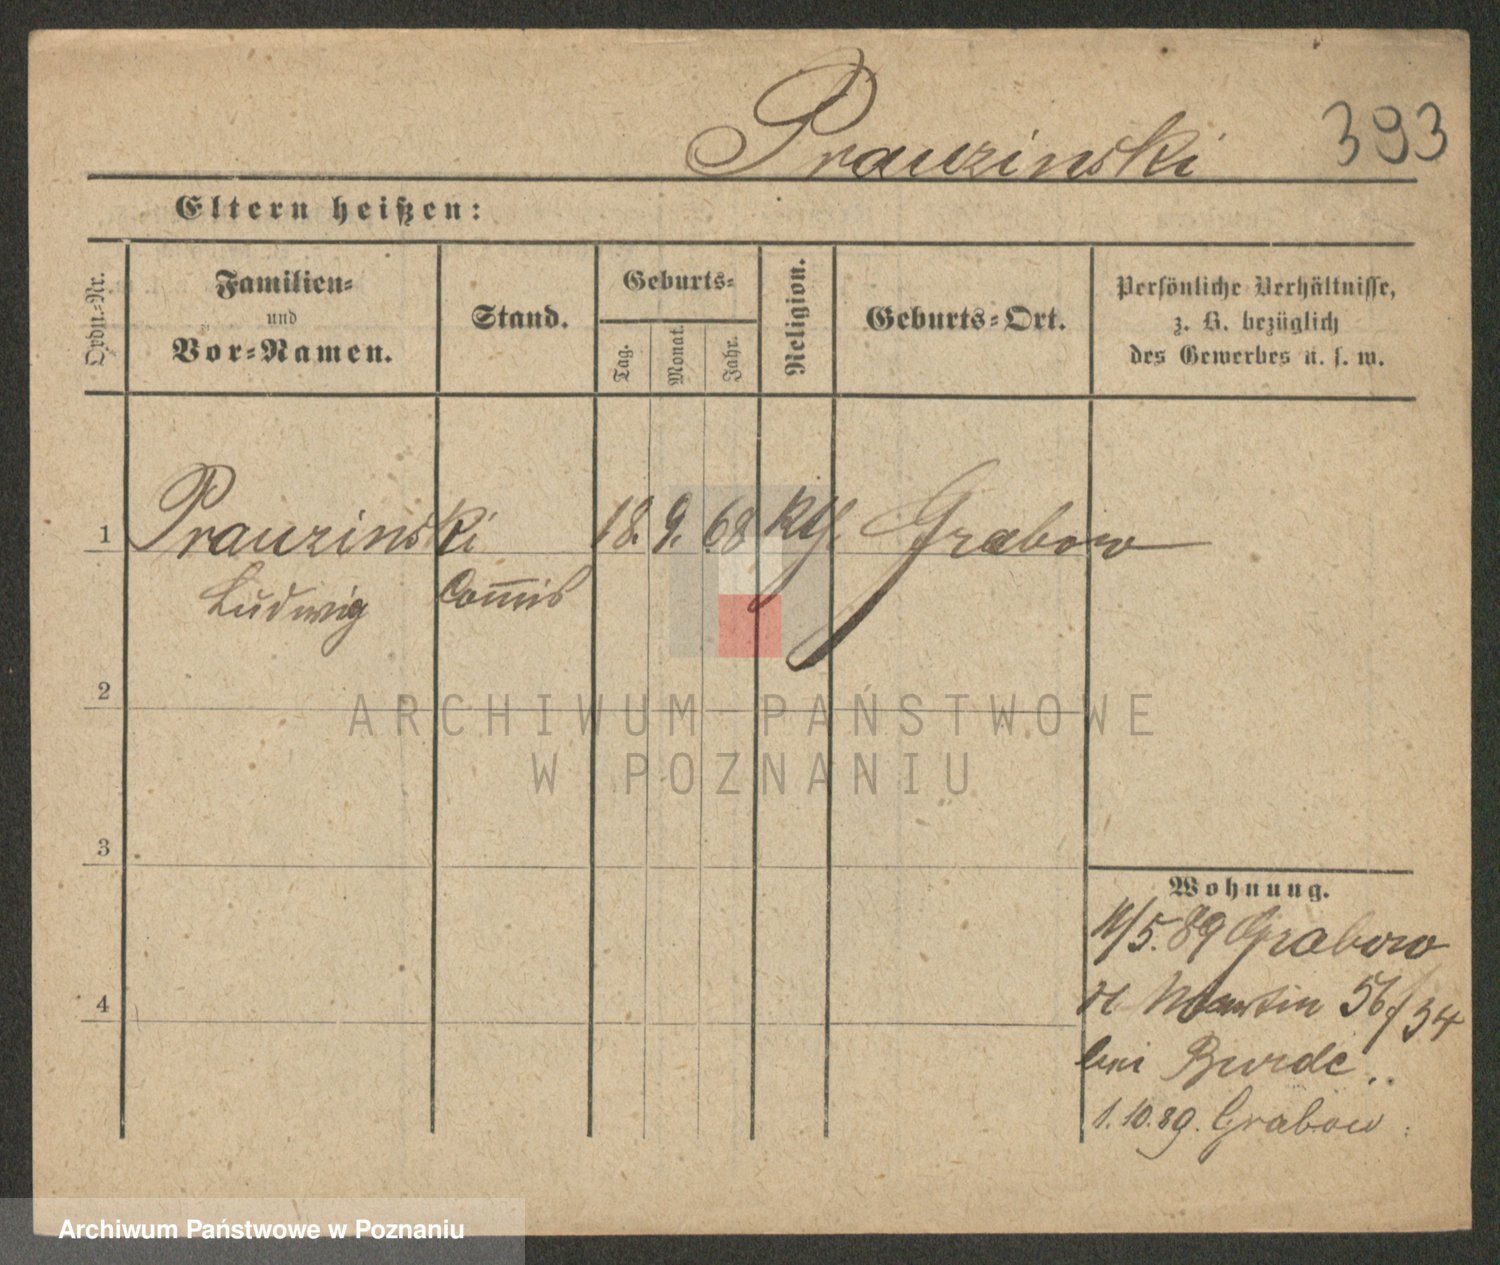 Prauzinski 393
Eltern heißen:
Ordn.-Nr.
Familien-
und
Vor-Namen.
Stand.
Geburts-
Tag.
Monat.
Jahr.
Religion.
Geburts-Ort.
Persönliche Verhältnisse,
z. B. bezüglich
des Gewerbes u. s. w.
1 Prauzinski 18. 9. 68 kth. Grabow
Ludwig Commis
2
3
4
Wohnung.
/5. 89 Grabow
St Martin 56/34
bei Burde
1. 10. 89. Grabow
ARCHIWUM PAŃSTWOWE
W POZNANIU
Archiwum Państwowe w Poznaniu